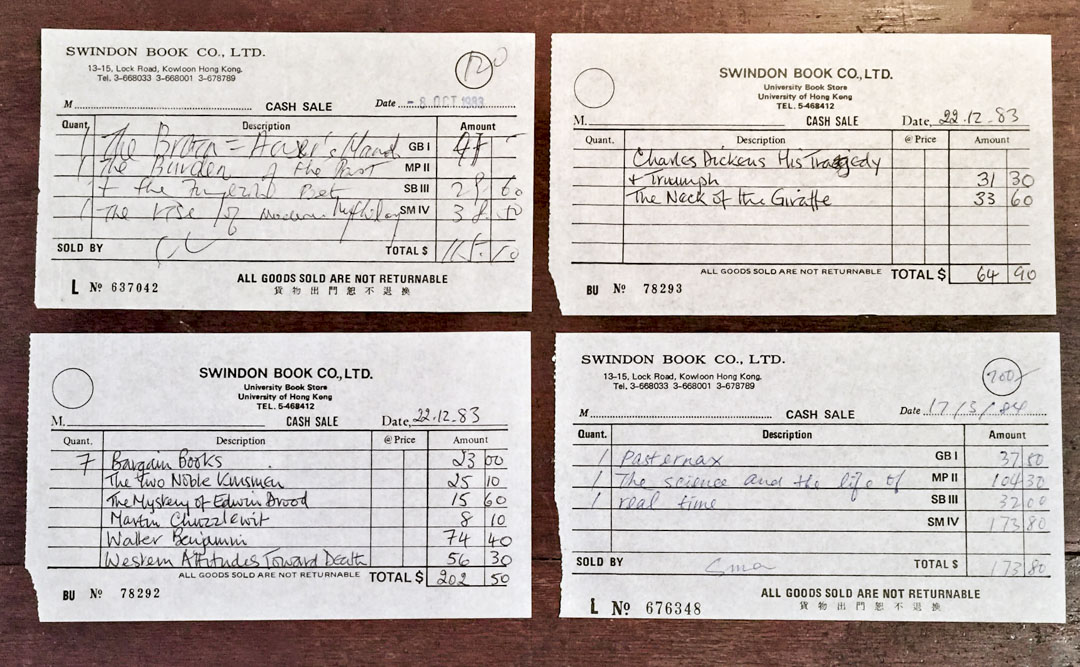 SWINDON BOOK CO., LTD.
13-15, Lock Road, Kowloon Hong Kong.
Tel. 3-668033 3-668001 3-678789
120
M
CASH SALE
Date - 8 OCT 1983
Quant. Description Amount
1 The GB I 47 -
1 The Burden of the Past MP II
+ the English Poet SB III 29 60
1 The Rise of Modern Mythology SM IV 38 50
SOLD BY TOTAL $ 115.10
ALL GOODS SOLD ARE NOT RETURNABLE
貨物出門恕不退換
L Nº 637042
SWINDON BOOK CO., LTD.
University Book Store
University of Hong Kong
TEL. 5-468412
M.
CASH SALE
Date, 22.12.83
Quant. Description @ Price Amount
Charles Dickens His Tragedy
+ Triumph 31 30
The Neck of the Giraffe 33 60
ALL GOODS SOLD ARE NOT RETURNABLE TOTAL $ 64 90
BU Nº 78293
SWINDON BOOK CO., LTD.
University Book Store
University of Hong Kong
TEL. 5-468412
M.
CASH SALE
Date, 22.12.83
Quant. Description @ Price Amount
7 Bargain Books 23 00
The Two Noble Kinsmen 25 10
The Mystery of Edwin Drood 15 60
Martin Chuzzlewit 8 10
Walter Benjamin 74 40
Western Attitudes Toward Death 56 30
ALL GOODS SOLD ARE NOT RETURNABLE TOTAL $ 202 50
BU Nº 78292
SWINDON BOOK CO., LTD.
13-15, Lock Road, Kowloon Hong Kong.
Tel. 3-668033 3-668001 3-678789
M
CASH SALE
Date 17/3/84
Quant. Description Amount
1 Pasternax GB I 37 50
1 The science and the life of MP II 104 30
1 real time SB III 32 00
SM IV 173 80
SOLD BY TOTAL $ 173 80
ALL GOODS SOLD ARE NOT RETURNABLE
貨物出門恕不退換
L Nº 676348